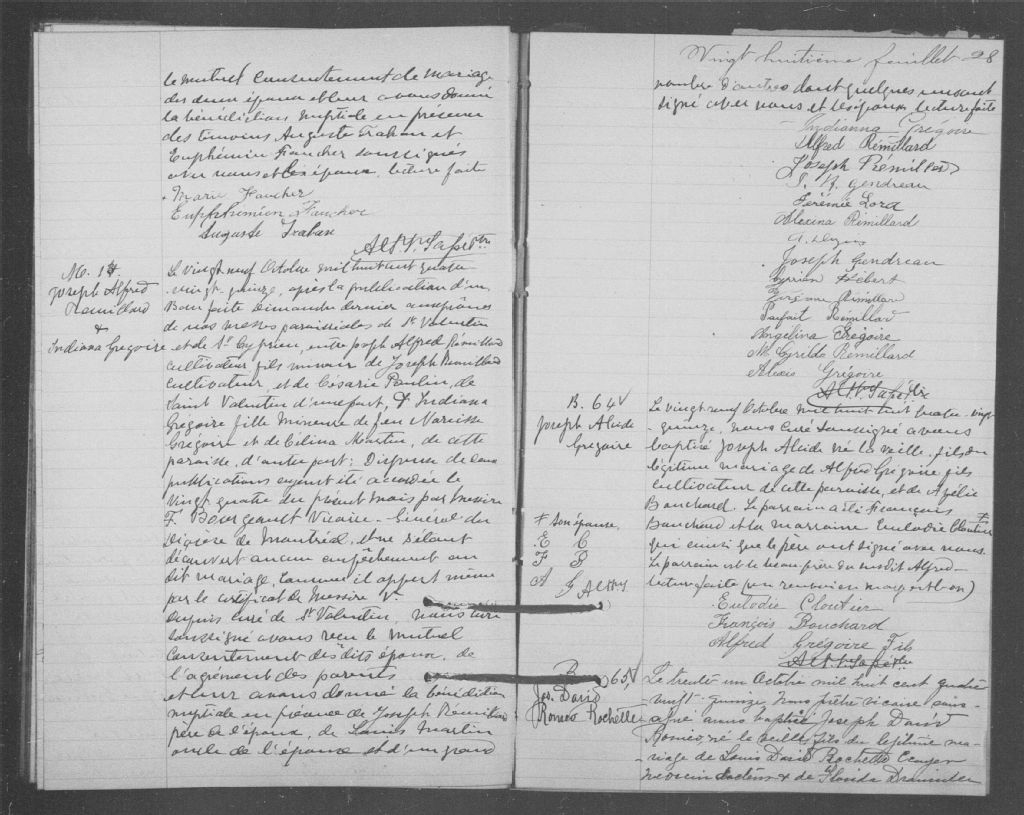 le mutuel consentement de mariage
des deux époux et leur avons donné
la bénédiction nuptiale en présence
des témoins Auguste Trahan et
Euphémien Faucher soussignés
avec nous et les époux, lecture faite
Marie Faucher
Euphrémien Faucher
Auguste Trahan
M. 17.
Joseph Alfred
Remillard
&
Indiana Gregoire
Le vingt neuf Octobre mil huit cent quatre
vingt quinze, après la publication d'un
Ban faite Dimanche dernier aux prônes
de nos messes paroissiales de St Valentin
et de St Cyprien, entre Joseph Alfred Rémillard
cultivateur fils mineur de Joseph Rémillard
cultivateur, et de Césarie Paulin, de
Saint Valentin d'une part, & Indiana
Gregoire fille Mineure de feu Narcisse
Grégoire et de Célina Martin, de cette
paroisse, d'autre part; Dispense de deux
publications ayant été accordée le
vingt quatre du présent mois par Messire
F. Bourgeault Vicaire-Général du
Diocèse de Montréal, et ne s'étant
découvert aucun empêchement au
dit mariage, comme il appert même
par le certificat de Messire V.
Dupuis curé de St Valentin, nous curé
soussigné avons reçu le mutuel
Consentement des dits époux, de
l'agrément des parents
et leur avons donné la bénédiction
nuptiale en présence de Joseph Rémillard
père de l'époux, de Louis Martin
oncle de l'épouse et d'un grand
Vingt huitième feuillet 28
nombre d'autres dont quelques uns ont
signé avec nous et les époux, lecture faite
Indianna Grégoire
Alfred Rémillard
Joseph Rémillard
S. N. Gendreau
Jérémie Lord
Alexina Rémillard
Joseph Gendreau
Cyprien Hébert
Rémillard
Parfait Rémillard
Angelina Grégoire
M. Cyrilda Rémillard
Alexis Grégoire
B. 64
Joseph Alcide
Grégoire
Le vingt neuf Octobre mil huit cent quatre-vingt
-quinze, nous curé soussigné avons
baptisé Joseph Alcide né la veille, fils du
légitime mariage de Alfred Grégoire fils
cultivateur de cette paroisse, et de Azélie
Bouchard. Le parrain a été François
Bouchard et la marraine Eulodie Cloutier #
# son épouse
E C
F B
A G
qui ainsi que le père ont signé avec nous.
Le parrain est le beau père du susdit Alfred-
lecture faite (un renvoi en marge est bon)
Eulodie Cloutier
François Bouchard
Alfred Grégoire Fils
B 65
Jos. David
Romeo Rochette
Le trente un Octobre mil huit cent quatre
vingt-quinze Nous prêtre vicaire sous-
signé avons baptisé Joseph David
Romeo, né la veille, fils du légitime ma-
riage de Louis David Rochette Ecuyer
médecin docteur & de Florida